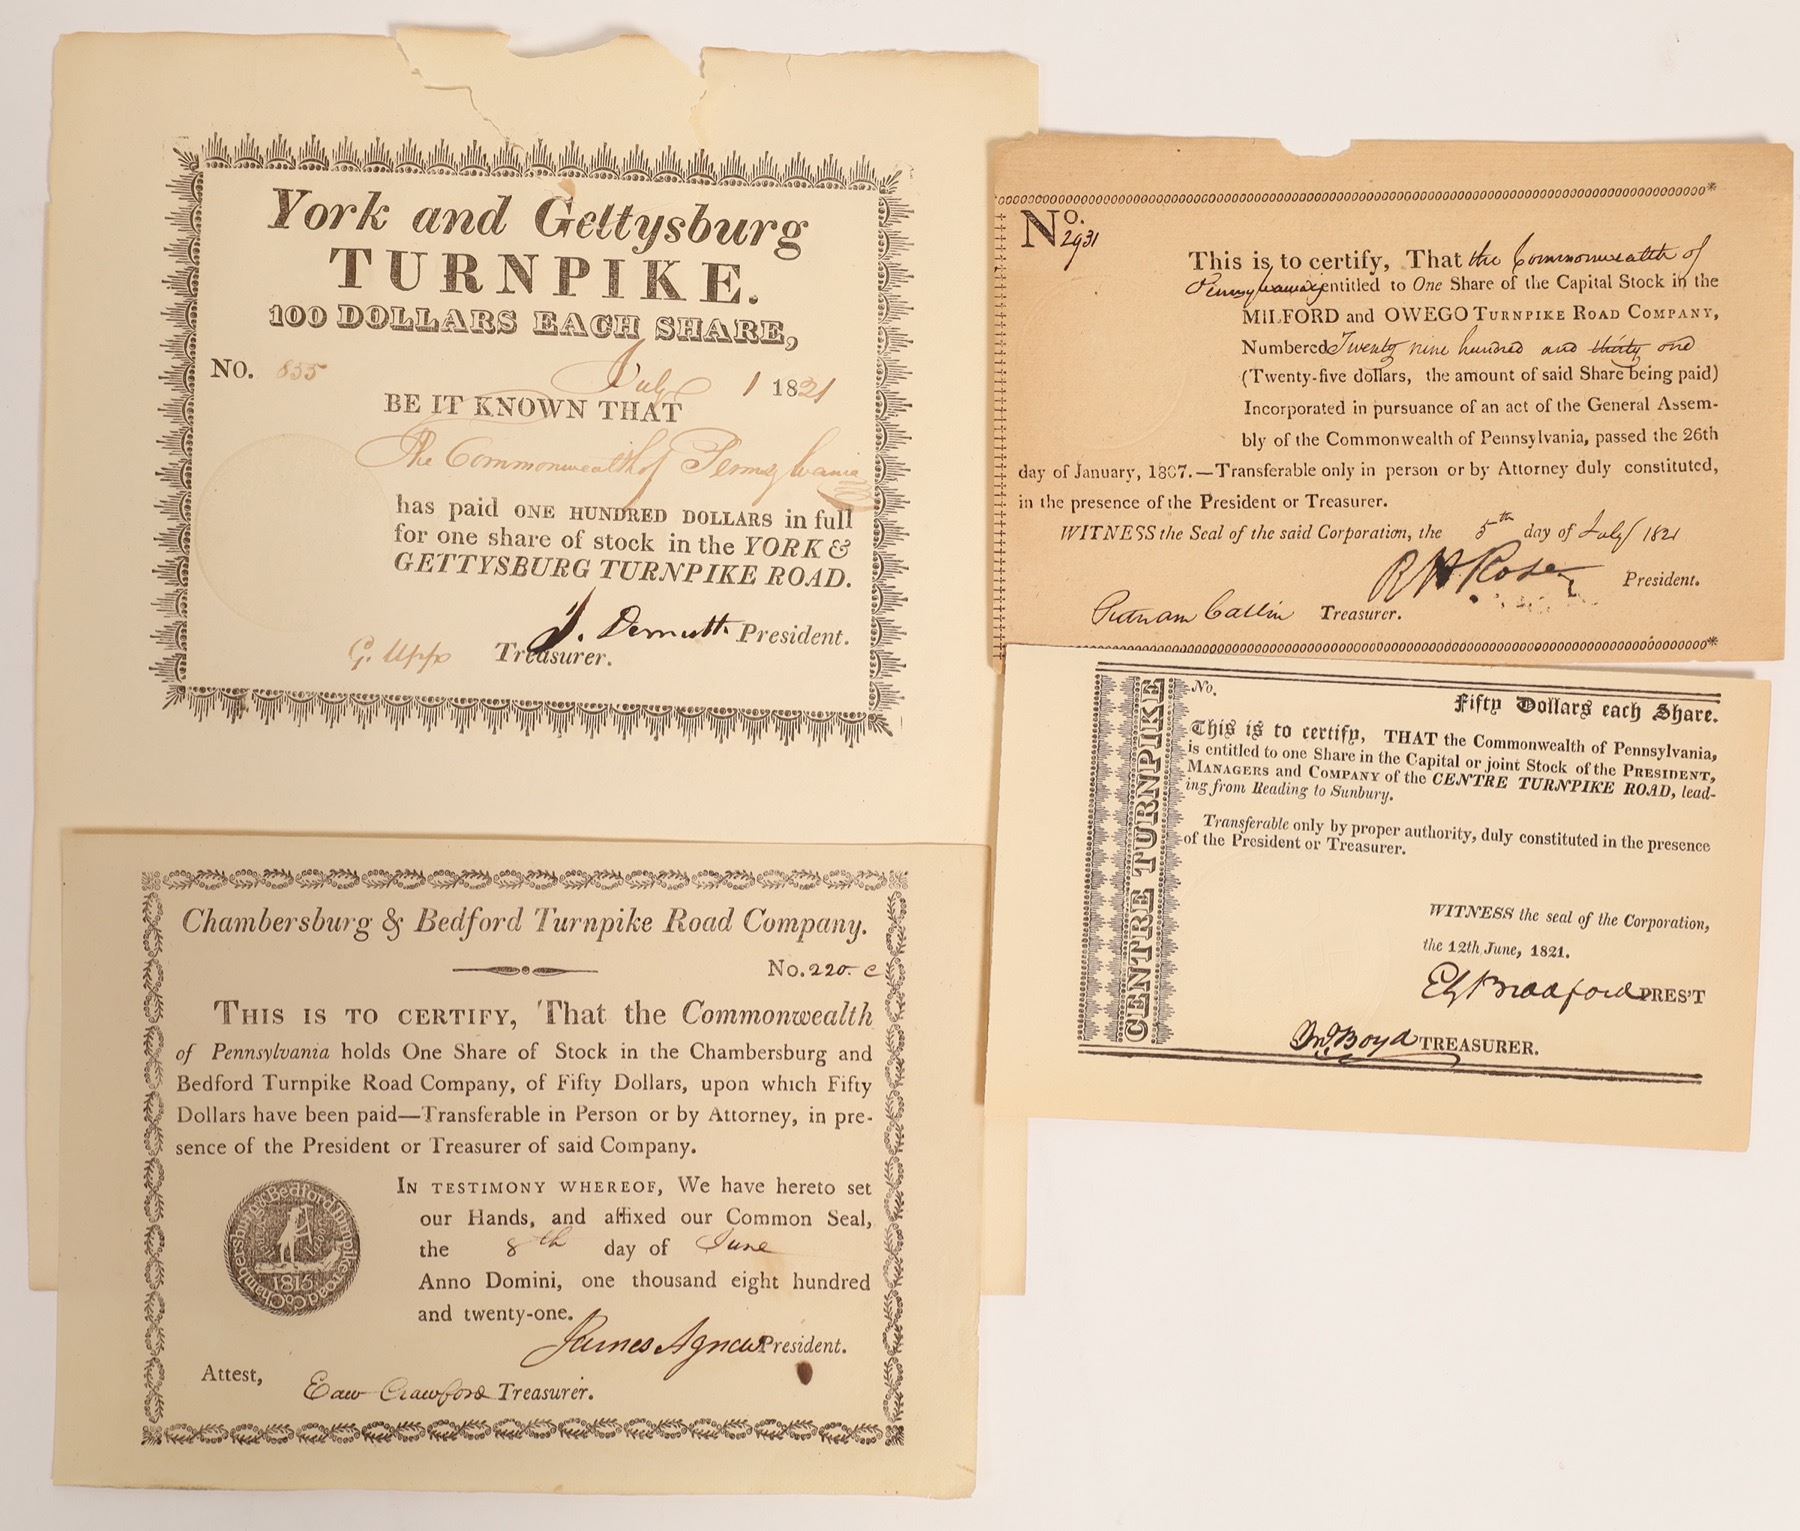 York and Gettysburg
TURNPIKE.
100 DOLLARS EACH SHARE,
NO. 855
July 1 1821
BE IT KNOWN THAT
The Commonwealth of Pennsylvania
has paid ONE HUNDRED DOLLARS in full
for one share of stock in the YORK &
GETTYSBURG TURNPIKE ROAD.
J. Demuth President.
G. Upp Treasurer.
No. 2931
This is to certify, That the Commonwealth of
Pennsylvania is entitled to One Share of the Capital Stock in the
MILFORD and OWEGO TURNPIKE ROAD COMPANY,
Numbered Twenty nine hundred and thirty one
(Twenty-five dollars, the amount of said Share being paid)
Incorporated in pursuance of an act of the General Assem-
bly of the Commonwealth of Pennsylvania, passed the 26th
day of January, 1807.—Transferable only in person or by Attorney duly constituted,
in the presence of the President or Treasurer.
WITNESS the Seal of the said Corporation, the 5th day of July 1821
R H Rose President.
Putnam Catlin Treasurer.
CENTRE TURNPIKE
No.
Fifty Dollars each Share.
This is to certify, THAT the Commonwealth of Pennsylvania,
is entitled to one Share in the Capital or joint Stock of the PRESIDENT,
MANAGERS and COMPANY of the CENTRE TURNPIKE ROAD, lead-
ing from Reading to Sunbury.
Transferable only by proper authority, duly constituted in the presence
of the President or Treasurer.
WITNESS the seal of the Corporation,
the 12th June, 1821.
Bradford PRES'T
Jno Boyd TREASURER.
Chambersburg & Bedford Turnpike Road Company.
No. 220. c
THIS IS TO CERTIFY, That the Commonwealth
of Pennsylvania holds One Share of Stock in the Chambersburg and
Bedford Turnpike Road Company, of Fifty Dollars, upon which Fifty
Dollars have been paid—Transferable in Person or by Attorney, in pre-
sence of the President or Treasurer of said Company.
IN TESTIMONY WHEREOF, We have hereto set
our Hands, and affixed our Common Seal,
the 8th day of June
Anno Domini, one thousand eight hundred
and twenty-one.
Chambersburg & Bedford Turnpike road Co
1815
James Agnew President.
Attest,
Edw Crawford Treasurer.